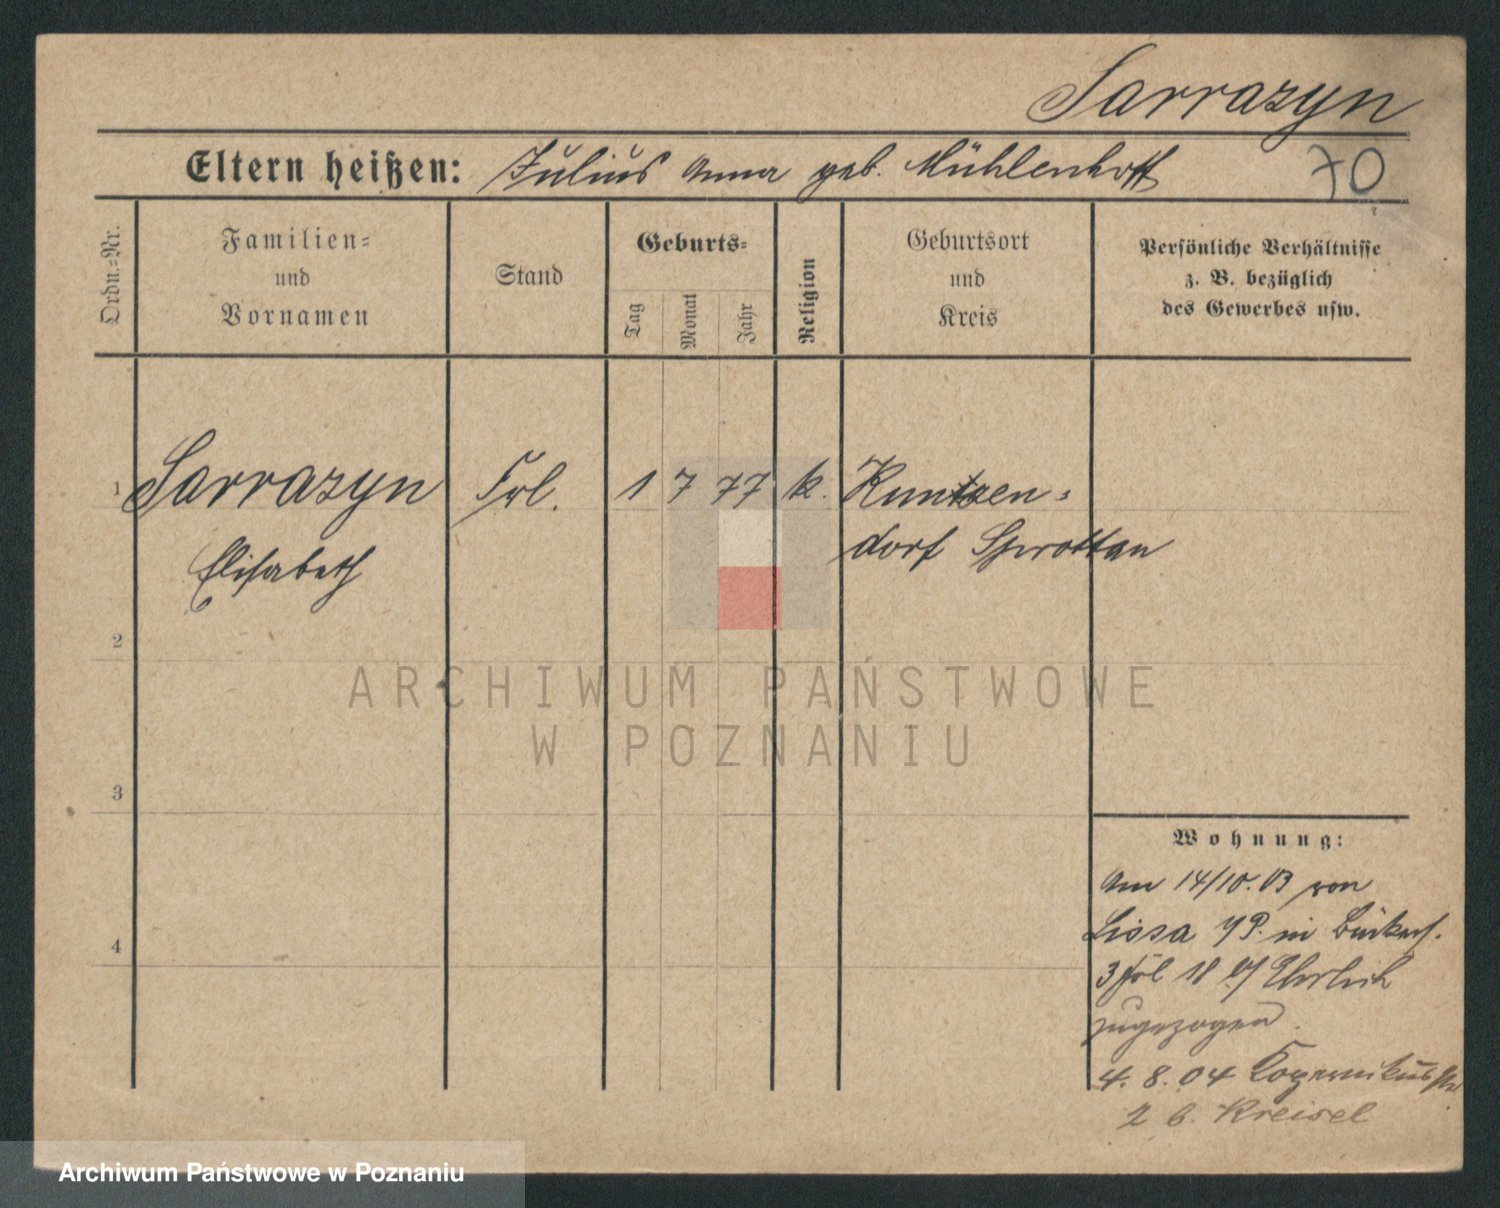 Sarrazyn
Eltern heißen: Julius Anna geb. Mühlenhoff
70
Ordn.-Nr.
Familien-
und
Vornamen
Stand
Geburts-
Tag
Monat
Jahr
Religion
Geburtsort
und
Kreis
Persönliche Verhältnisse
z. B. bezüglich
des Gewerbes usw.
1 Sarrazyn Frl. 1 7 77 k. Kuntzen-
Elisabeth dorf Sprottau
2
ARCHIWUM PAŃSTWOWE
W POZNANIU
3
Wohnung:
Am 14/10. 03 von
Lissa i/P. in
4
18 b/ Ehrlich
zugezogen.
4. 8. 04
2 b. Kreisel
Archiwum Państwowe w Poznaniu